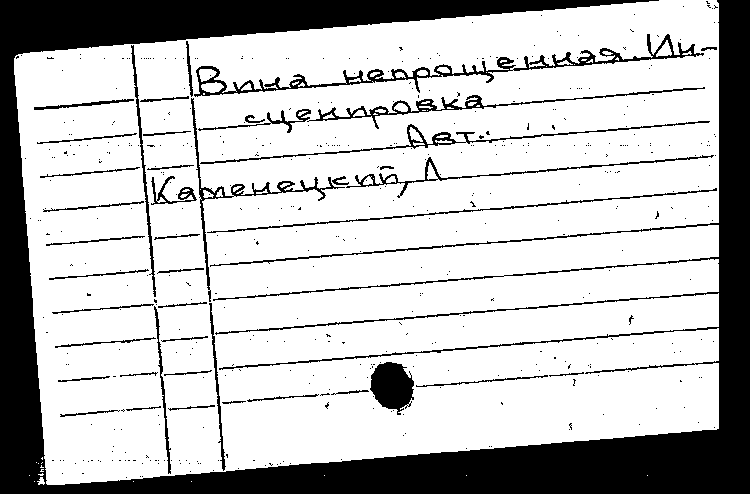 Вина непрощенная. Ин-
сценировка
Авт.:
Каменецкий, Л